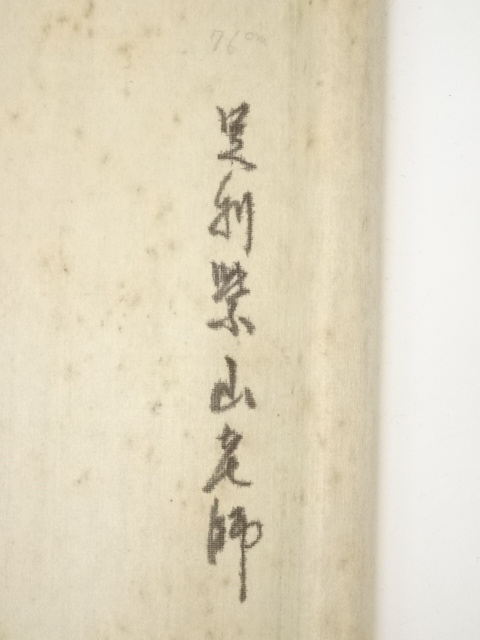 足利紫山老師